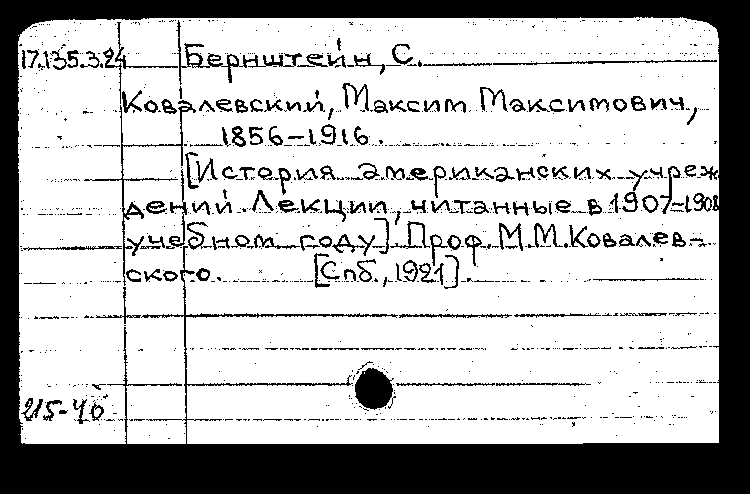 17.135.3.24 Бернштейн, С.
Ковалевский, Максим Максимович,
1856-1916.
[История американских учреж
дений. Лекции, читанные в 1907-1908
учебном году] Проф. М.М.Ковалев-
ского. [Спб., 1921].
215-40